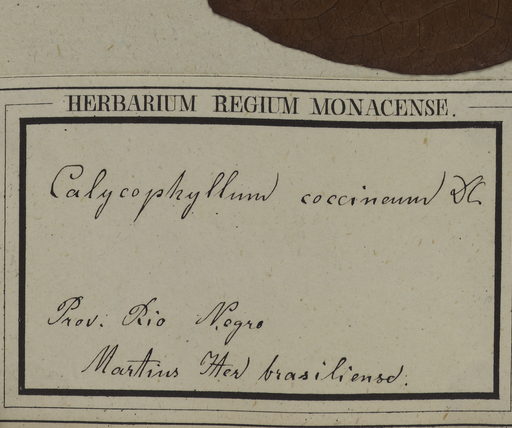 HERBARIUM REGIUM MONACENSE.
Calycophyllum coccineum DC
Prov. Rio Negro
Martius Iter brasiliense.